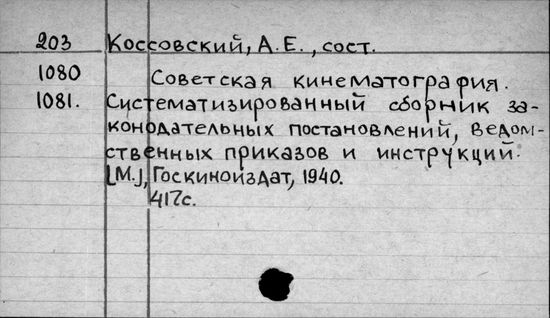 203 Коссовский, А.Е., сост.
1080 Советская кинематография.
1081. Систематизированный сборник за-
конодательных постановлений, ведом-
ственных приказов и инструкций.
[М.], Госкиноиздат, 1940.
417с.